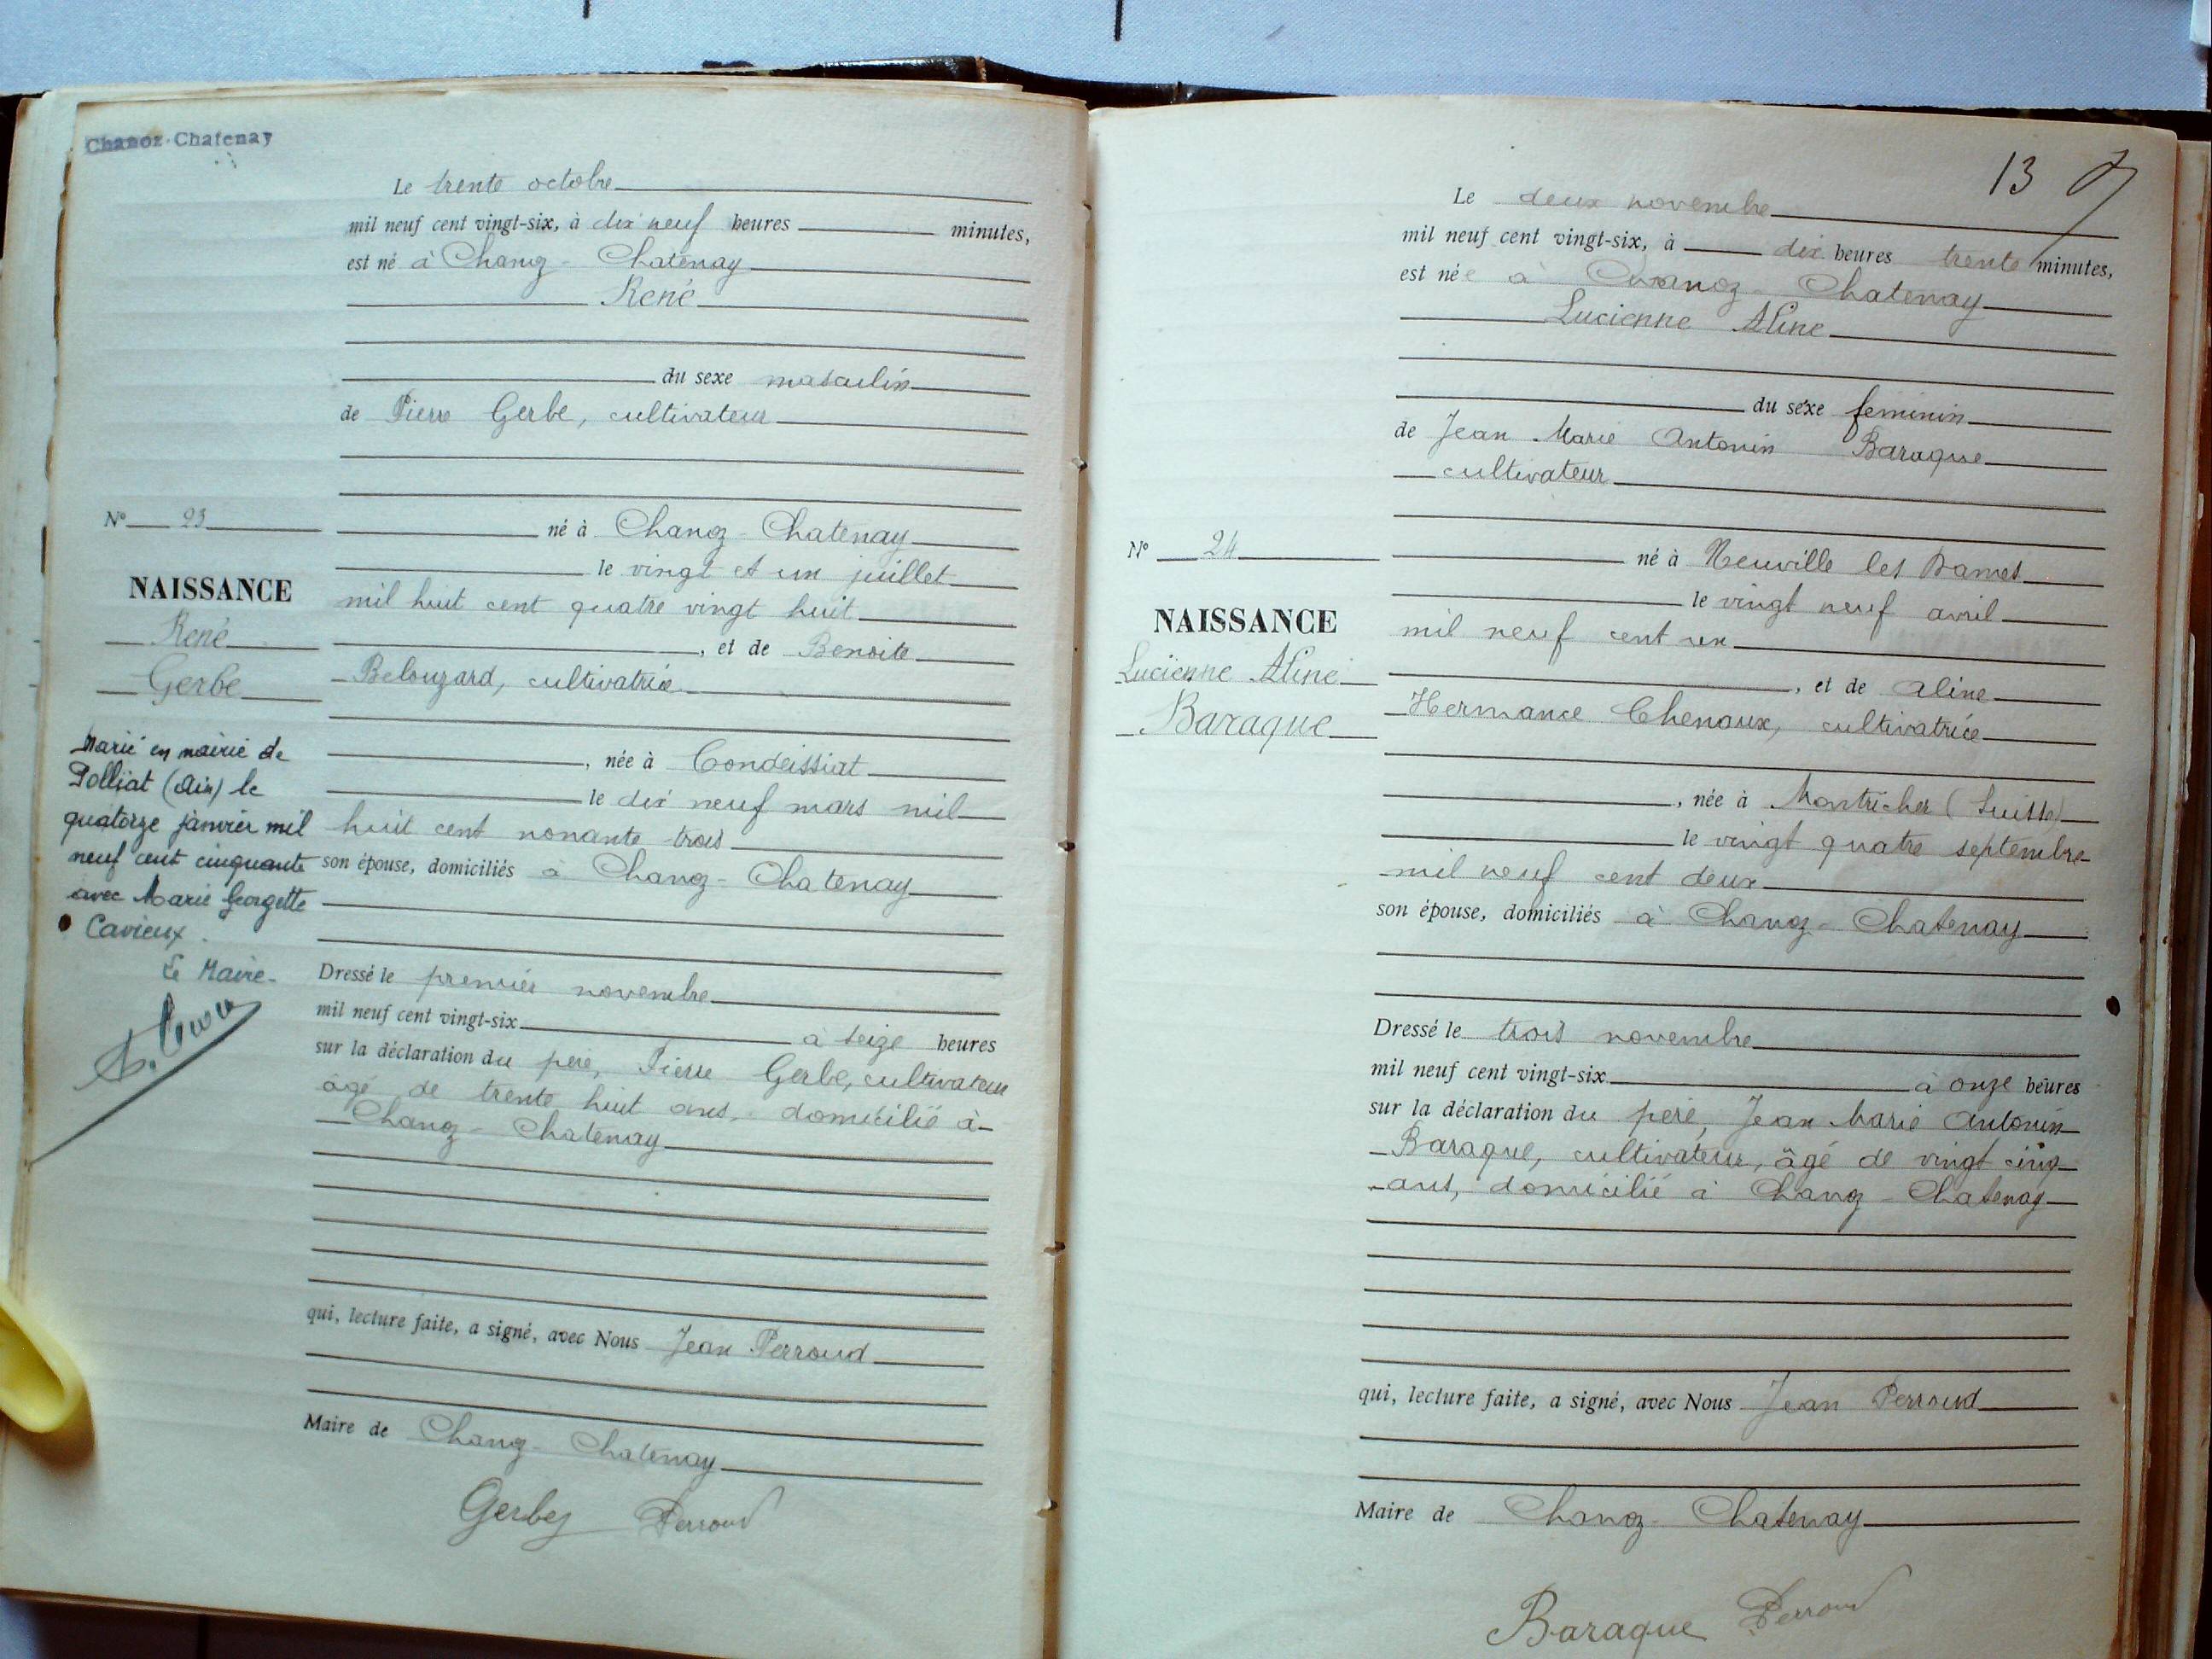 Chanoz-Chatenay
Le trente octobre
mil neuf cent vingt-six, à dix neuf heures minutes,
est né à Chanoz-Chatenay
René
du sexe masculin
de Pierre Gerbe, cultivateur
N° 23
né à Chanoz-Chatenay
le vingt et un juillet
NAISSANCE
mil huit cent quatre vingt huit
René
, et de Benoite
Gerbe
Belouzard, cultivatrice
, née à Condeissiat
le dix neuf mars mil
huit cent nonante trois
son épouse, domiciliés à Chanoz-Chatenay
Marié en mairie de
Polliat (Ain) le
quatorze janvier mil
neuf cent cinquante
avec Marie Georgette
Cavieux.
Le Maire
Dressé le premier novembre
mil neuf cent vingt-six à seize heures
sur la déclaration du père, Pierre Gerbe, cultivateur
âgé de trente huit ans, domicilié à
Chanoz-Chatenay
qui, lecture faite, a signé, avec Nous Jean Perroud
Maire de Chanoz-Chatenay
Gerbe Perroud
13
Le deux novembre
mil neuf cent vingt-six, à dix heures trente minutes,
est née à Chanoz-Chatenay
Lucienne Aline
du sexe feminin
de Jean Marie Antonin Baraque
cultivateur
N° 24
né à Neuville les Dames
le vingt neuf avril
NAISSANCE
mil neuf cent un
Lucienne Aline
, et de Aline
Baraque
Hermance Chenaux, cultivatrice
, née à Montricher (Suisse)
le vingt quatre septembre
mil neuf cent deux
son épouse, domiciliés à Chanoz-Chatenay
Dressé le trois novembre
mil neuf cent vingt-six à onze heures
sur la déclaration du père, Jean Marie Antonin
Baraque, cultivateur, âgé de vingt cinq
ans, domicilié à Chanoz-Chatenay
qui, lecture faite, a signé, avec Nous Jean Perroud
Maire de Chanoz-Chatenay
Baraque Perroud